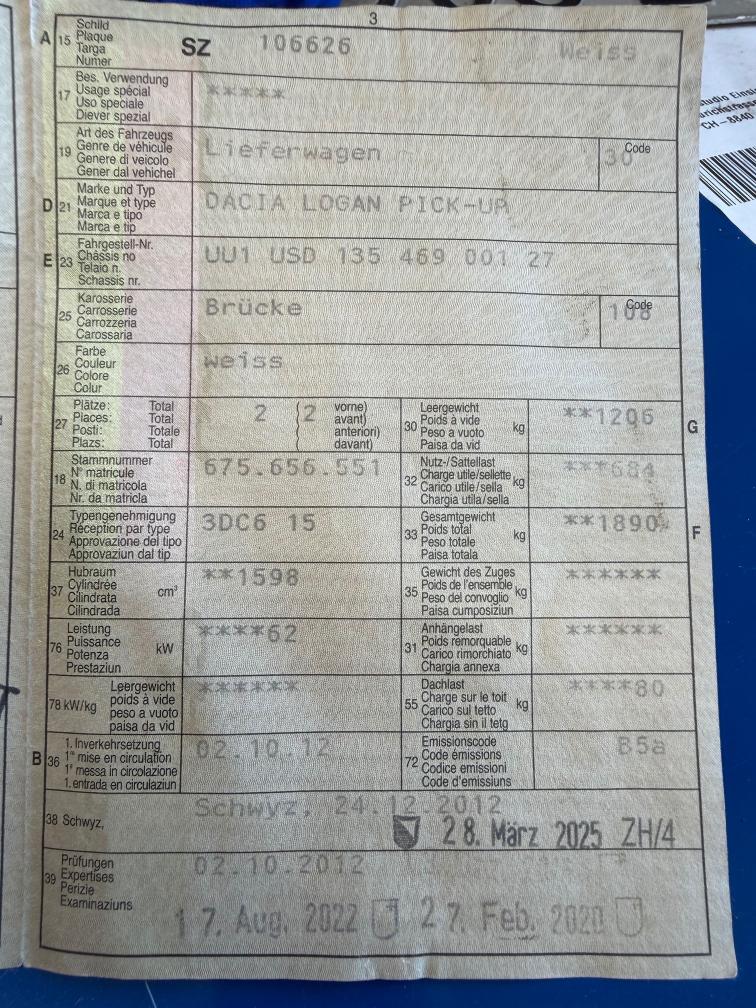 3
A 15 Schild
Plaque
Targa
Numer
SZ 106626 Weiss
17 Bes. Verwendung
Usage spécial
Uso speciale
Diever spezial
*****
19 Art des Fahrzeugs
Genre de véhicule
Genere di veicolo
Gener dal vehichel
Lieferwagen
Code
30
D 21 Marke und Typ
Marque et type
Marca e tipo
Marca e tip
DACIA LOGAN PICK-UP
E 23 Fahrgestell-Nr.
Châssis no
Telaio n.
Schassis nr.
UU1 USD 135 469 001 27
25 Karosserie
Carrosserie
Carrozzeria
Carossaria
Brücke
Code
108
26 Farbe
Couleur
Colore
Colur
weiss
27 Plätze: Total
Places: Total
Posti: Totale
Plazs: Total
2 (2 vorne)
avant)
anteriori)
davant)
30 Leergewicht
Poids à vide
Peso a vuoto
Paisa da vid
kg
**1206
G
18 Stammnummer
N° matricule
N. di matricola
Nr. da matricla
675.656.551
32 Nutz-/Sattellast
Charge utile/sellette
Carico utile/sella
Chargia utila/sella
kg
***684
24 Typengenehmigung
Réception par type
Approvazione del tipo
Approvaziun dal tip
3DC6 15
33 Gesamtgewicht
Poids total
Peso totale
Paisa totala
kg
**1890
F
37 Hubraum
Cylindrée
Cilindrata
Cilindrada
cm³
**1598
35 Gewicht des Zuges
Poids de l'ensemble
Peso del convoglio
Paisa cumposiziun
kg
******
76 Leistung
Puissance
Potenza
Prestaziun
kW
****62
31 Anhängelast
Poids remorquable
Carico rimorchiato
Chargia annexa
kg
******
78 kW/kg Leergewicht
poids à vide
peso a vuoto
paisa da vid
******
55 Dachlast
Charge sur le toit
Carico sul tetto
Chargia sin il tetg
kg
****80
B 36 1. Inverkehrsetzung
1re mise en circulation
1a messa in circolazione
1. entrada en circulaziun
02.10.12
72 Emissionscode
Code émissions
Codice emissioni
Code d'emissiuns
B5a
38 Schwyz,
Schwyz, 24.12.2012
28. März 2025 ZH/4
39 Prüfungen
Expertises
Perizie
Examinaziuns
02.10.2012
17. Aug. 2022 27. Feb. 2020
CH-8840